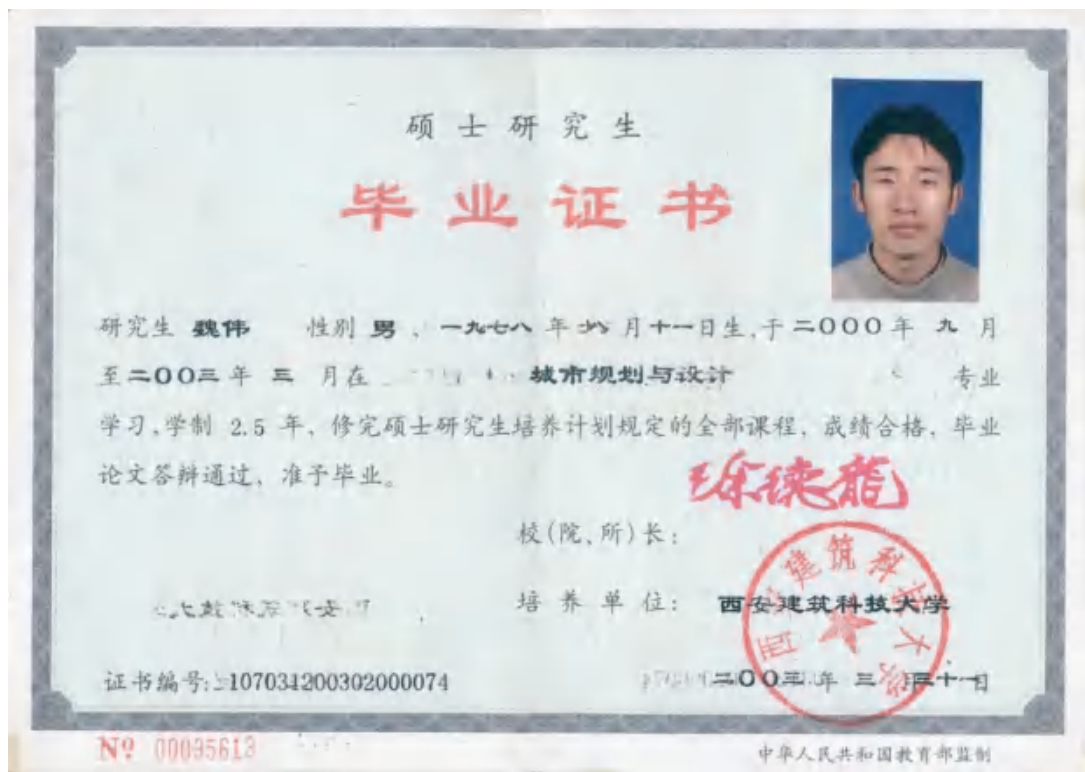 硕士研究生
毕业证书
研究生 魏伟 性别 男、一九七八 年 月十一日生,于二000年 九 月
至二00三年 三 月在 城市规划与设计 专业
学习,学制 2.5 年、修完硕士研究生培养计划规定的全部课程、成绩合格、毕业
论文答辩通过、准予毕业。
徐德龙
校(院、所)长:
培养单位: 西安建筑科技大学
西安建筑科技大学
证书编号: 107034200302000074
二00三年 三 月三十一日
Nº 00095613
中华人民共和国教育部监制